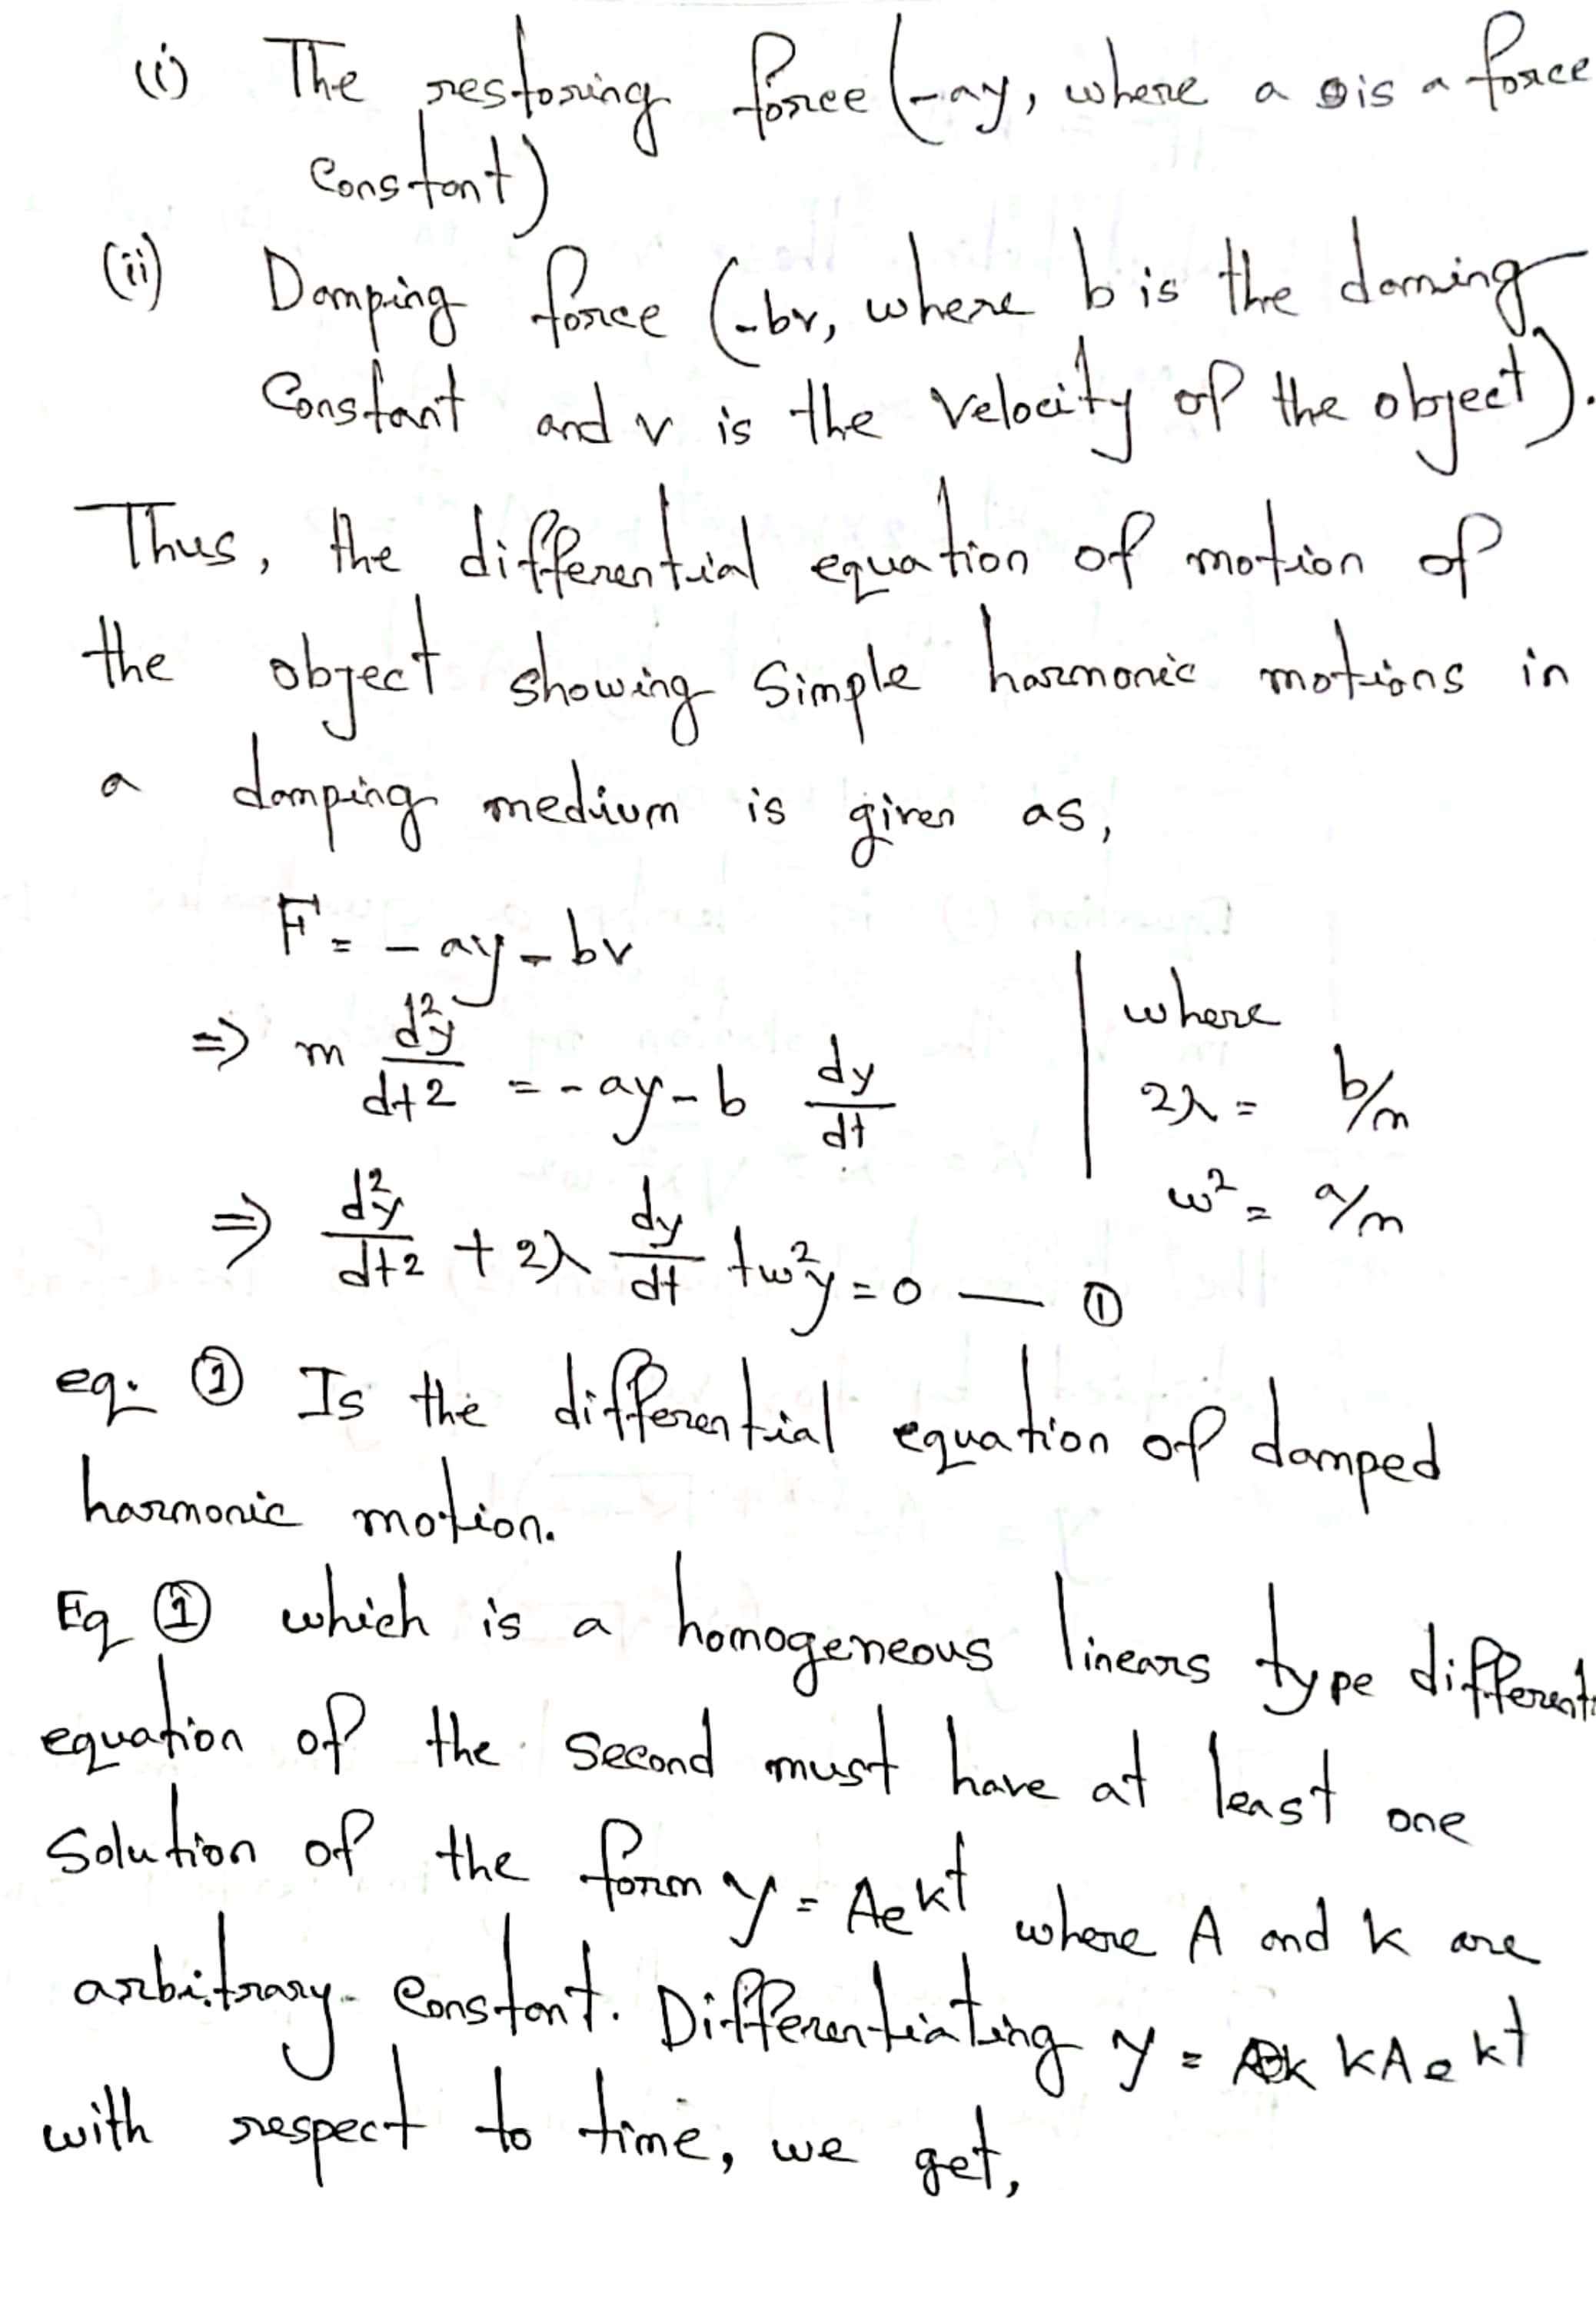 (i) The restoring force (-ay, where a is a force
constant)
(ii) Damping force (-bv, where b is the daming
Constant and v is the velocity of the object).
Thus, the differential equation of motion of
the object showing Simple harmonic motions in
a damping medium is given as,
F = - ay - bv
where
⇒ m d²y/dt2 = - ay - b dy/dt
2λ = b/m
w² = a/m
⇒ d²y/dt2 + 2λ dy/dt + w²y = 0 — ①
eq. ① Is the differential equation of damped
harmonic motion.
Eq ① which is a homogeneous linears type
equation of the second must have at least one
Solution of the form y = Ae kt where A and k are
arbitrary constant. Differentiating y = kAe kt
with respect to time, we get,